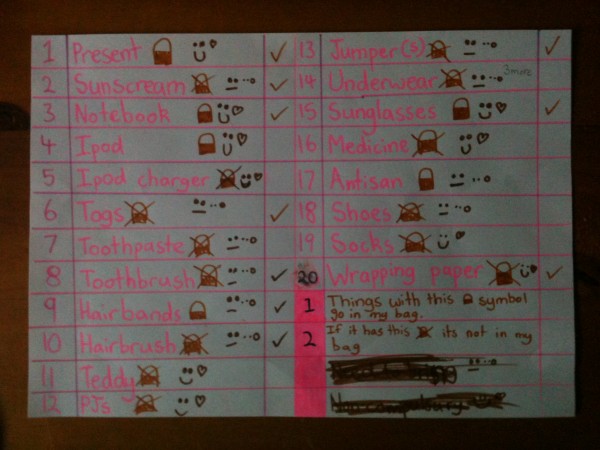 1 Present
2 Sunscream
3 Notebook
4 Ipod
5 Ipod charger
6 Togs
7 Toothpaste
8 Toothbrush
9 Hairbands
10 Hairbrush
11 Teddy
12 PJs
13 Jumper(s)
14 Underwear 3 more
15 Sunglasses
16 Medicine
17 Antisan
18 Shoes
19 Socks
20 Wrapping paper
1 Things with this symbol
go in my bag.
2 If it has this its not in my
bag